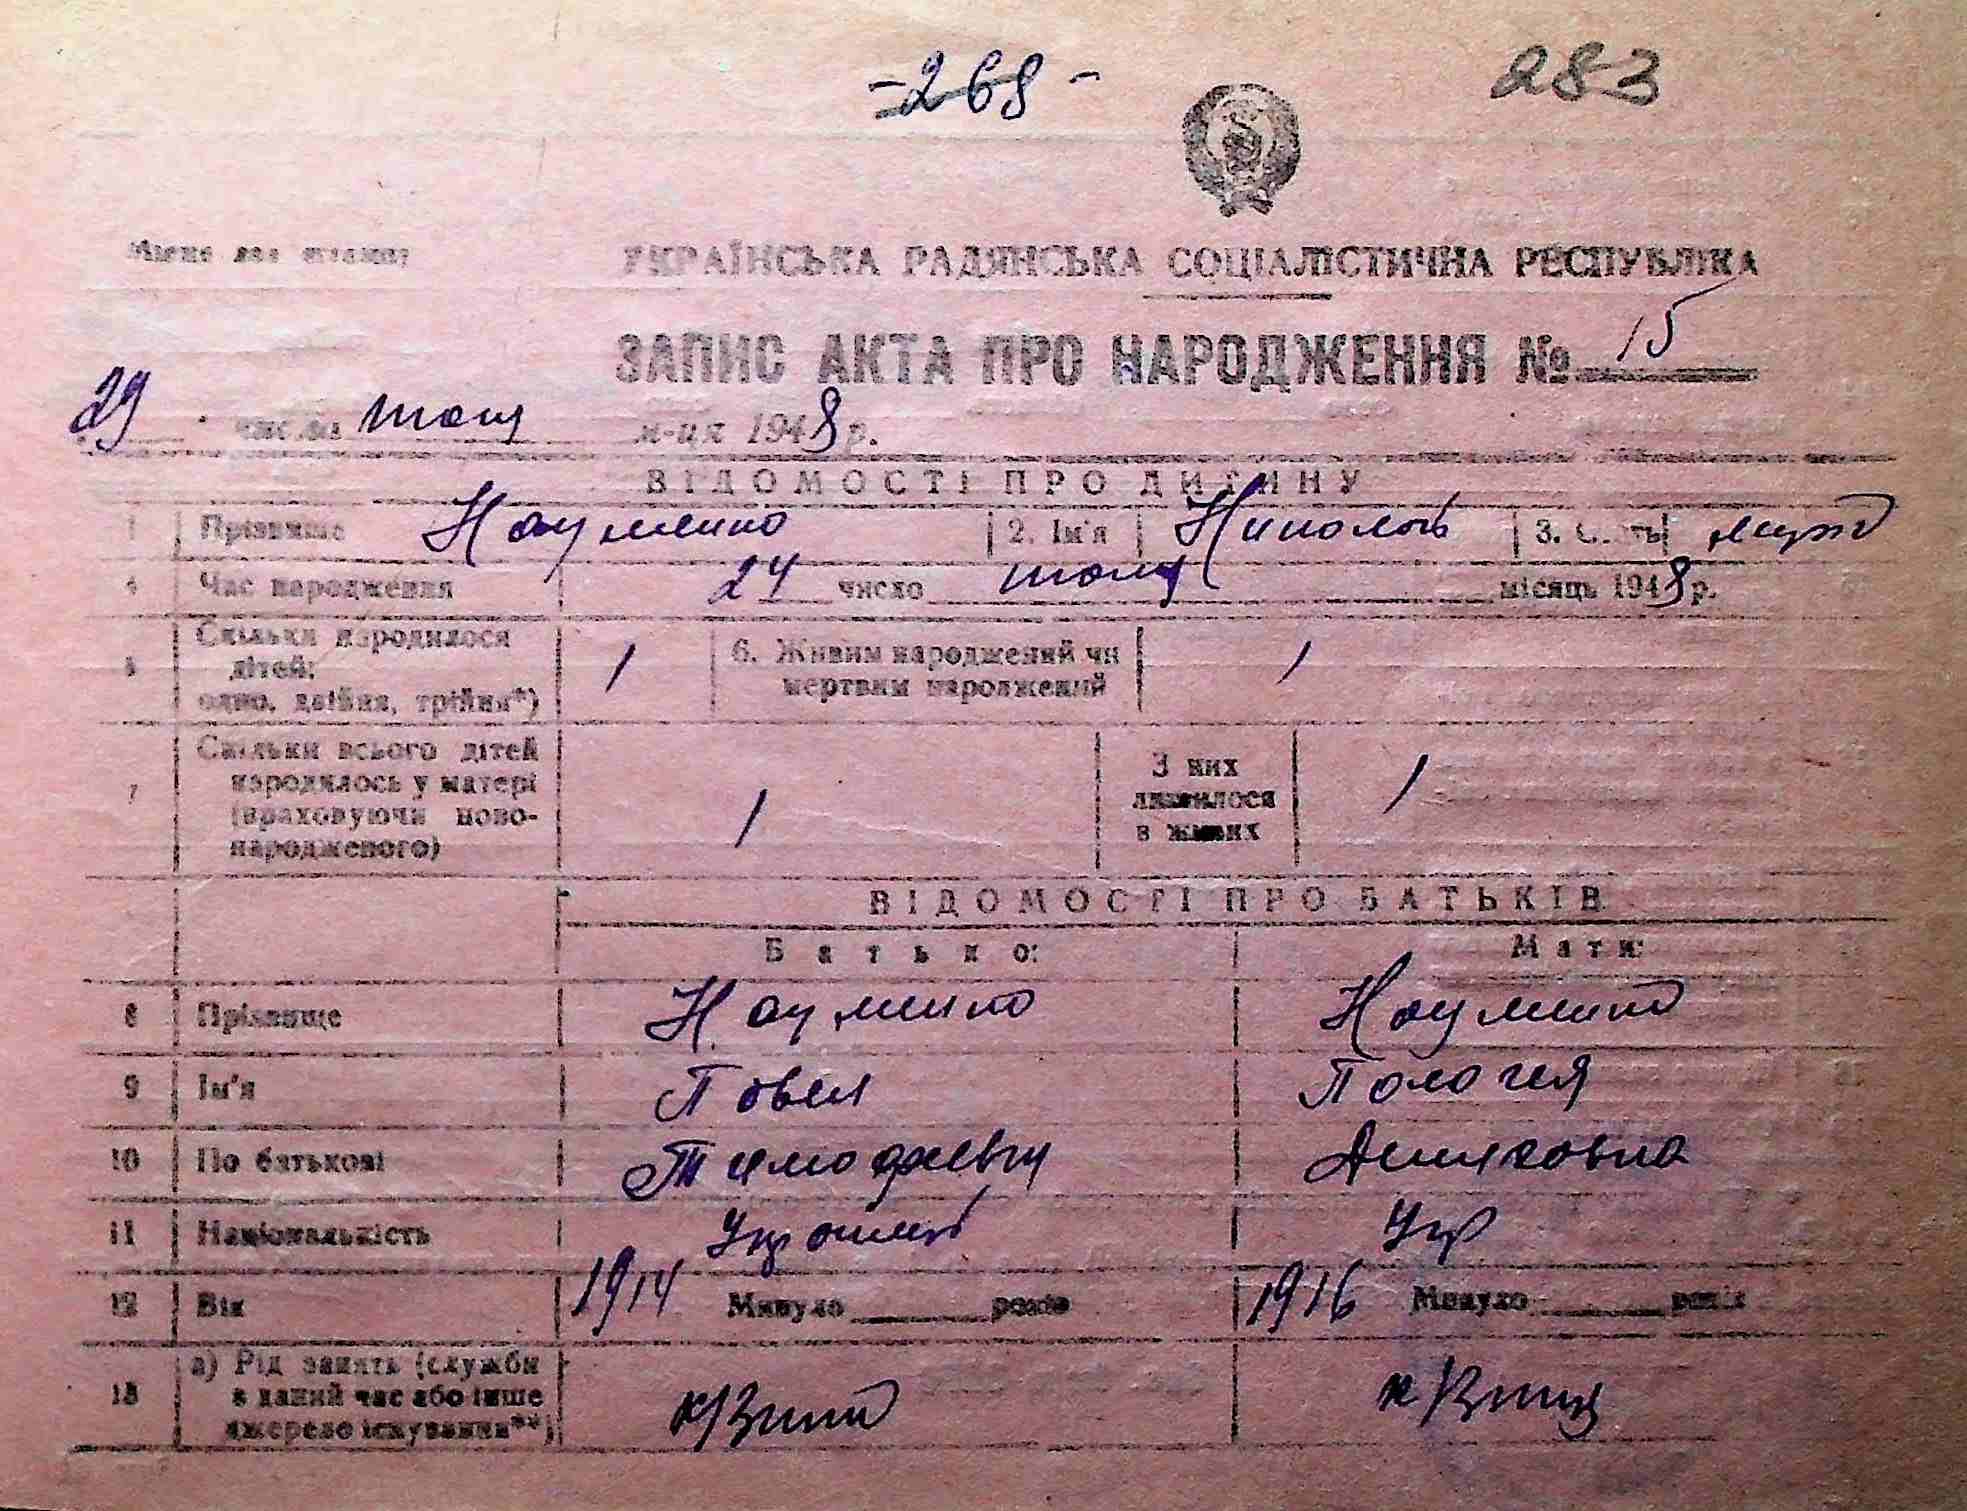 -268-
283
Місце для штампу
УКРАЇНСЬКА РАДЯНСЬКА СОЦІАЛІСТИЧНА РЕСПУБЛІКА
ЗАПИС АКТА ПРО НАРОДЖЕННЯ № 15
29 число м-ця 1948 р.
ВІДОМОСТІ ПРО ДИТИНУ
1 Прізвище Науменко 2. Ім'я Николай 3. Стать муж
4 Час народження 24 число місяць 1948 р.
5 Скільки народилося дітей: одно, двійня, трійня*) 1 6. Живим народжений чи мертвим народжений 1
7 Скільки всього дітей народилось у матері (враховуючи новонародженого) 1 З них лишилося в живих 1
ВІДОМОСТІ ПРО БАТЬКІВ
Батько: Мати:
8 Прізвище Науменко Науменко
9 Ім'я Павел Пелагея
10 По батькові Тимофеевич
11 Національність Укр
12 Вік 1914 Минуло років 1916 Минуло років
13 а) Рід занять (служби в даний час або інше джерело існування**)